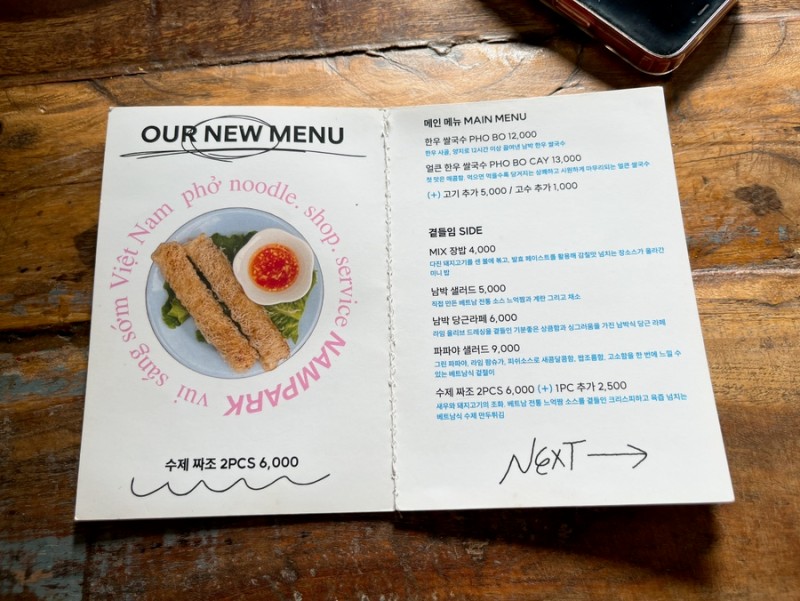 OUR NEW MENU
vui sáng sớm Việt Nam phở noodle. shop. service NAMPARK
수제 짜조 2PCS 6,000
메인 메뉴 MAIN MENU
한우 쌀국수 PHO BO 12,000
한우 사골, 양지로 12시간 이상 끓여낸 남박 한우 쌀국수
얼큰 한우 쌀국수 PHO BO CAY 13,000
첫 맛은 매콤함, 먹으면 먹을수록 당겨지는 상쾌하고 시원하게 마무리되는 얼큰 쌀국수
(+) 고기 추가 5,000 / 고수 추가 1,000
곁들임 SIDE
MIX 장밥 4,000
다진 돼지고기를 센 불에 볶고, 발효 페이스트를 활용해 감칠맛 넘치는 장소스가 올라간
미니 밥
남박 샐러드 5,000
직접 만든 베트남 전통 소스 느억짬과 계란 그리고 채소
남박 당근라페 6,000
라임 올리브 드레싱을 곁들인 기분좋은 상큼함과 싱그러움을 가진 남박식 당근 라페
파파야 샐러드 9,000
그린 파파야, 라임 팜슈가, 피쉬소스로 새콤달콤함, 짭조름함, 고소함을 한 번에 느낄 수
있는 베트남식 겉절이
수제 짜조 2PCS 6,000 (+) 1PC 추가 2,500
새우와 돼지고기의 조화, 베트남 전통 느억짬 소스를 곁들인 크리스피하고 육즙 넘치는
베트남식 수제 만두튀김
NEXT →